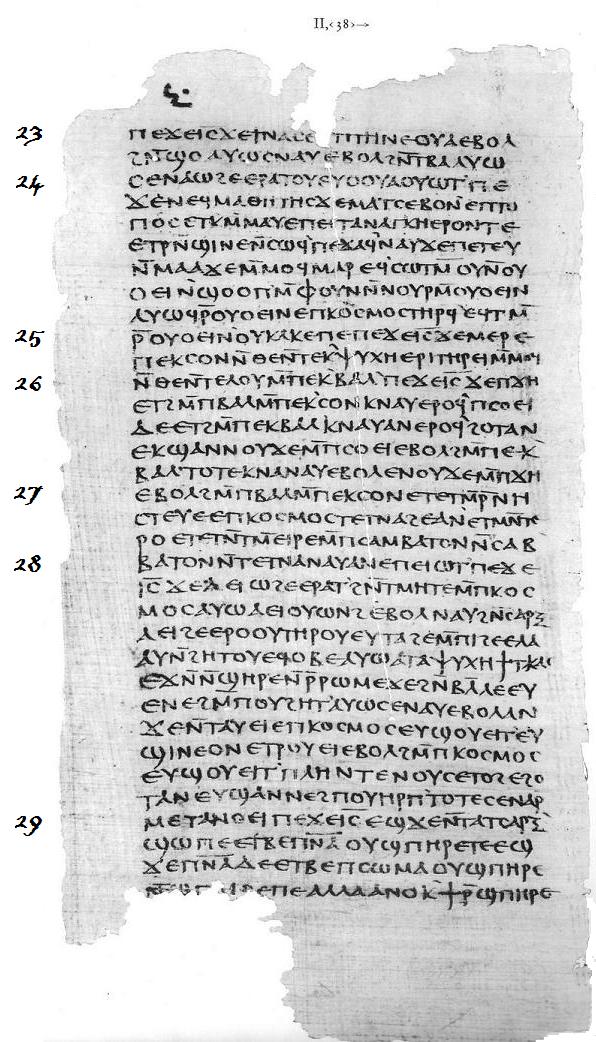 II,‹38›→
23 ⲡⲉϫⲉⲓⲥ̅ϫⲉϯⲛⲁⲥⲉ ⲡⲧⲏⲛⲉⲟⲩⲁⲉⲃⲟⲗ
ϩⲛ̅ϣⲟⲁⲩⲱⲥⲛⲁⲩⲉⲃⲟⲗϩⲛ̅ⲧⲃⲁⲁⲩⲱ
24 ⲥⲉⲛⲁⲱϩⲉⲉⲣⲁⲧⲟⲩⲉⲩⲟⲟⲩⲁⲟⲩⲱⲧⲡⲉ
ϫⲉⲛⲉϥⲙⲁⲑⲏⲧⲏⲥϫⲉⲙⲁⲧⲥⲉⲃⲟⲛⲉⲡⲧⲟ
ⲡⲟⲥⲉⲧⲕⲙ̅ⲙⲁⲩⲉⲡⲉⲓⲧⲁⲛⲁⲅⲕⲏⲉⲣⲟⲛⲧⲉ
ⲉⲧⲣⲛ̅ϣⲓⲛⲉⲛ̅ⲥⲱϥⲡⲉϫⲁϥⲛⲁⲩϫⲉⲡⲉⲧⲉⲩ
ⲛ̅ⲙⲁⲁϫⲉⲙ̅ⲙⲟϥⲙⲁⲣⲉϥⲥⲱⲧⲙ̅ⲟⲩⲛ̅ⲟⲩ
ⲟⲉⲓⲛϣⲟⲟⲡⲙ̅ⲫⲟⲩⲛⲛ̅ⲛⲟⲩⲣⲙ̅ⲟⲩⲟⲉⲓⲛ
ⲁⲩⲱϥⲣⲟⲩⲟⲉⲓⲛⲉⲡⲕⲟⲥⲙⲟⲥⲧⲏⲣϥ̅ⲉϥⲧⲙ̅
25 ⲣ̅ⲟⲩⲟⲉⲓⲛⲟⲩⲕⲁⲕⲉⲡⲉⲡⲉϫⲉⲓⲥ̅ϫⲉⲙⲉⲣⲉ
ⲡⲉⲕⲥⲟⲛⲛ̅ⲑⲉⲛ̅ⲧⲉⲕⲯⲩⲭⲏⲉⲣⲓⲧⲏⲣⲉⲓⲙ̅ⲙⲟϥ
26 ⲛ̅ⲑⲉⲛ̅ⲧⲉⲗⲟⲩⲙ̅ⲡⲉⲕⲃⲁⲗⲡⲉϫⲉⲓⲥ̅ϫⲉⲡϫⲏ
ⲉⲧϩⲙ̅ⲡⲃⲁⲗⲙ̅ⲡⲉⲕⲥⲟⲛⲕⲛⲁⲩⲉⲣⲟϥⲡⲥⲟⲉⲓ
ⲇⲉⲉⲧϩⲙ̅ⲡⲉⲕⲃⲁⲗⲕⲛⲁⲩⲁⲛⲉⲣⲟϥϩⲟⲧⲁⲛ
ⲉⲕϣⲁⲛⲛⲟⲩϫⲉⲙ̅ⲡⲥⲟⲉⲓⲉⲃⲟⲗϩⲙ̅ⲡⲉⲕ
ⲃⲁⲗⲧⲟⲧⲉⲕⲛⲁⲛⲁⲩⲉⲃⲟⲗⲉⲛⲟⲩϫⲉⲙ̅ⲡϫⲏ
27 ⲉⲃⲟⲗϩⲙ̅ⲡⲃⲁⲗⲙ̅ⲡⲉⲕⲥⲟⲛⲉⲧⲉⲧⲙ̅ⲣⲛⲏ
ⲥⲧⲉⲩⲉⲉⲡⲕⲟⲥⲙⲟⲥⲧⲉⲧⲛⲁϩⲉⲁⲛⲉⲧⲙⲛ̅ⲧⲉ
ⲣⲟⲉⲧⲉⲧⲛ̅ⲧⲙ̅ⲉⲓⲣⲉⲙ̅ⲡⲥⲁⲙⲃⲁⲧⲟⲛⲛ̅ⲥⲁⲃ
28 ⲃⲁⲧⲟⲛⲛ̅ⲧⲉⲧⲛⲁⲛⲁⲩⲁⲛⲉⲡⲉⲓⲱⲧⲡⲉϫⲉ
ⲓⲥ̅ϫⲉⲁⲉⲓⲱϩⲉⲉⲣⲁⲧϩⲛ̅ⲧⲙⲏⲧⲉⲙ̅ⲡⲕⲟⲥ
ⲙⲟⲥⲁⲩⲱⲁⲉⲓⲟⲩⲱⲛϩⲉⲃⲟⲗⲛⲁⲩϩⲛ̅ⲥⲁⲣⲝ
ⲁⲉⲓϩⲉⲉⲣⲟⲟⲩⲧⲏⲣⲟⲩⲉⲩⲧⲁϩⲉⲙ̅ⲡⲓϩⲉⲉⲗⲁ
ⲁⲩⲛ̅ϩⲏⲧⲟⲩⲉϥⲟⲃⲉⲁⲩⲱⲁⲧⲁⲯⲩⲭⲏϯⲧⲕⲁⲥ
ⲉϫⲛ̅ⲛ̅ϣⲏⲣⲉⲛ̅ⲣ̅ⲣⲱⲙⲉϫⲉϩⲛ̅ⲃⲗ̅ⲗⲉⲉⲩ
ⲉⲛⲉϩⲙ̅ⲡⲟⲩϩⲏⲧⲁⲩⲱⲥⲉⲛⲁⲩⲉⲃⲟⲗⲁⲛ
ϫⲉⲛ̅ⲧⲁⲩⲉⲓⲉⲡⲕⲟⲥⲙⲟⲥⲉⲩϣⲟⲩⲉⲓⲧⲉⲩ
ϣⲓⲛⲉⲟⲛⲉⲧⲣⲟⲩⲉⲓⲉⲃⲟⲗϩⲙ̅ⲡⲕⲟⲥⲙⲟⲥ
ⲉⲩϣⲟⲩⲉⲓⲧⲡⲗⲏⲛⲧⲉⲛⲟⲩⲥⲉⲧⲟϩⲉϩⲟ
ⲧⲁⲛⲉⲩϣⲁⲛⲛⲉϩⲡⲟⲩⲏⲣⲡⲧⲟⲧⲉⲥⲉⲛⲁⲣ
29 ⲙⲉⲧⲁⲛⲟⲉⲓⲡⲉϫⲉⲓⲥ̅ⲉϣϫⲉⲛ̅ⲧⲁⲧⲥⲁⲣⲝ
ϣⲱⲡⲉⲉⲧⲃⲉⲡⲛ̅ⲁ̅ⲟⲩϣⲡⲏⲣⲉⲧⲉⲉϣ
ϫⲉⲡⲛ̅ⲁ̅ⲇⲉⲉⲧⲃⲉⲡⲥⲱⲙⲁⲟⲩϣⲡⲏⲣⲉ
ⲛ̅ϣⲡⲏⲣⲉⲡⲉⲁⲗⲗⲁⲁⲛⲟⲕϯⲣ̅ϣⲡⲏⲣⲉ